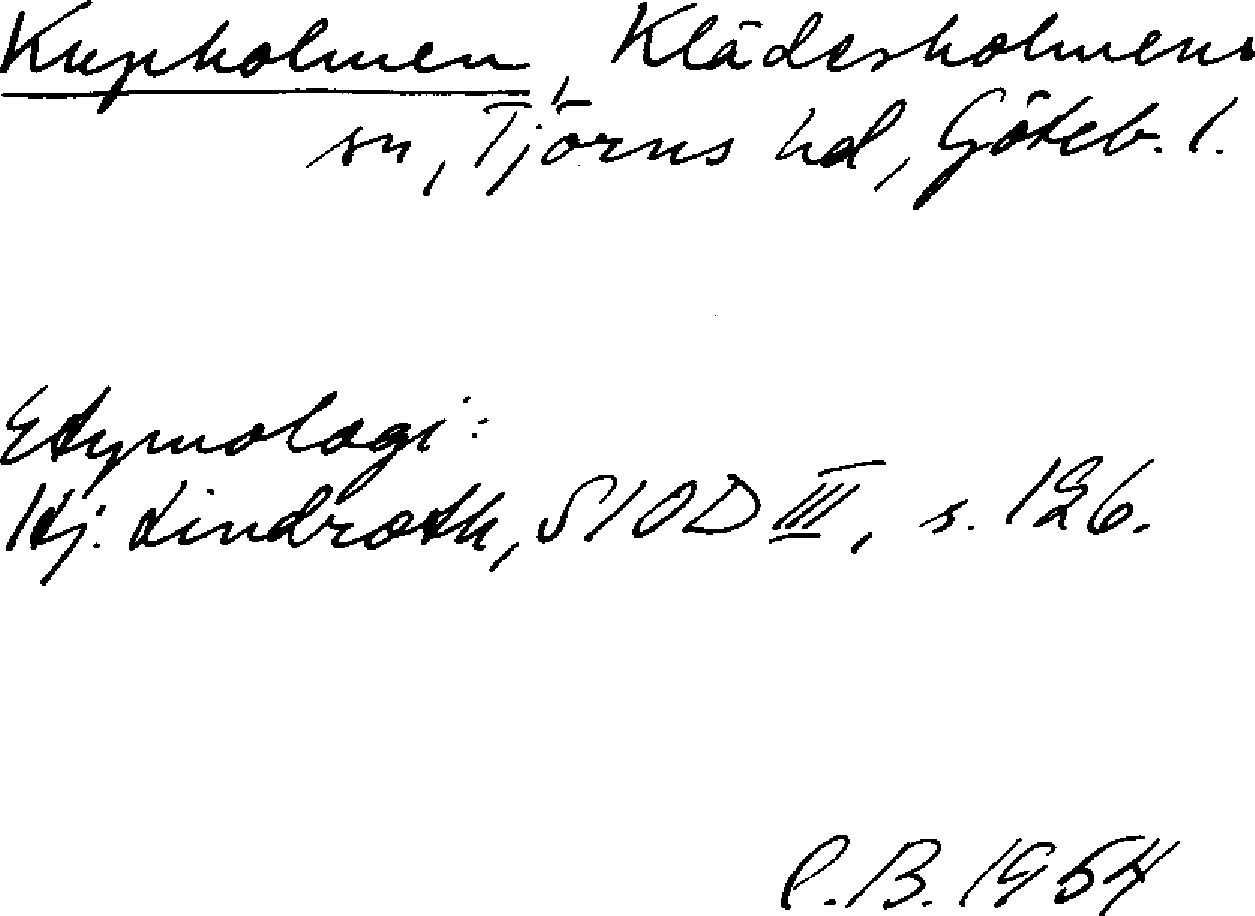 Kupholmen, Klädesholmens
sn, Tjörns hd, Göteb. l.
Etymologi:
Hj. Lindroth, SIOD III, s. 126.
P.B. 1954